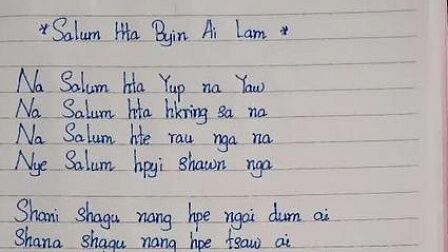 *Salum Hta Byin Ai Lam *
Na Salum hta Yup na Yaw
Na Salum hta hkring sa na
Na Salum hte rau nga na
Nye Salum hpyi shawn nga
Shani shagu nang hpe ngai dum ai
Shana shagu nang hpe tsaw ai